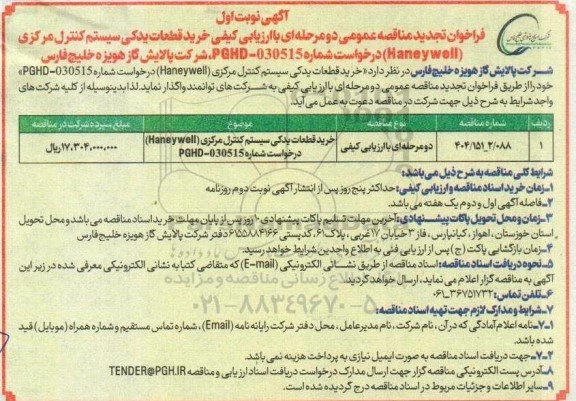 آگهی نوبت اول
فراخوان تجدید مناقصه عمومی دو مرحله‌ای با ارزیابی کیفی خرید قطعات یدکی سیستم کنترل مرکزی
(Haneywell) درخواست شماره PGHD-030515، شرکت پالایش گاز هویزه خلیج فارس
شرکت پالایش گاز هویزه خلیج فارس در نظر دارد «خرید قطعات یدکی سیستم کنترل مرکزی (Haneywell) درخواست شماره PGHD-030515»
خود را از طریق فراخوان تجدید مناقصه عمومی دو مرحله ای با ارزیابی کیفی به شرکت های توانمند واگذار نماید. لذا بدینوسیله از کلیه شرکت های
واجد شرایط به شرح ذیل جهت شرکت در مناقصه دعوت به عمل می آید.
ردیف شماره مناقصه نوع مناقصه موضوع مبلغ سپرده شرکت در مناقصه
۱ ۴۰۴/۱۵۱_۲/۰۸۸ دو مرحله‌ای با ارزیابی کیفی خرید قطعات یدکی سیستم کنترل مرکزی (Haneywell) ۱۷.۳۰۴.۰۰۰.۰۰۰ ریال
درخواست شماره PGHD-030515
شرایط کلی مناقصه به شرح ذیل می باشد:
۱-زمان خرید اسناد مناقصه و ارزیابی کیفی: حداکثر پنج روز پس از انتشار آگهی نوبت دوم روزنامه
۲-فاصله آگهی اول و دوم یک هفته می باشد.
۳-زمان و محل تحویل پاکات پیشنهادی: آخرین مهلت تسلیم پاکات پیشنهادی ۱۰ روز پس از پایان مهلت خرید اسناد مناقصه می باشد و محل تحویل
استان خوزستان، اهواز، کیانپارس، فاز ۳ خیابان ۱۷ غربی، پلاک ۶۱، کدپستی ۶۱۵۵۸۸۴۶۶ دفتر شرکت پالایش گاز هویزه خلیج فارس
۴-زمان بازگشایی پاکت (ج) پس از ارزیابی فنی به اطلاع واجدین شرایط خواهد رسید.
۵-نحوه دریافت اسناد مناقصه: اسناد مناقصه از طریق نشانی الکترونیکی (E-mail) که متقاضی کتبا به نشانی الکترونیکی معرفی شده در زیر این
آگهی به مناقصه گزار اعلام می نماید، ارسال خواهد گردید
۶-تلفن تماس: ۳۶۷۵۱۷۳۲-۰۶۱
۷-شرایط و مدارک لازم جهت تهیه اسناد مناقصه:
۷-۱-نامه اعلام آمادگی که در آن، نام شرکت، نام مدیرعامل، محل دفتر شرکت رایانه نامه (Email)، شماره تماس مستقیم و شماره همراه (موبایل) قید
شده باشد.
۷-۲-جهت دریافت اسناد مناقصه به صورت ایمیل نیازی به پرداخت هزینه نمی باشد.
۸-آدرس پست الکترونیکی مناقصه گزار جهت ارسال مدارک درخواست دریافت اسناد ارزیابی و مناقصه TENDER@PGH.IR
۹-سایر اطلاعات و جزئیات مربوط در اسناد مناقصه درج گردیده شده است.
۰۲۱-۸۸۳۴۹۶۷۰-۵